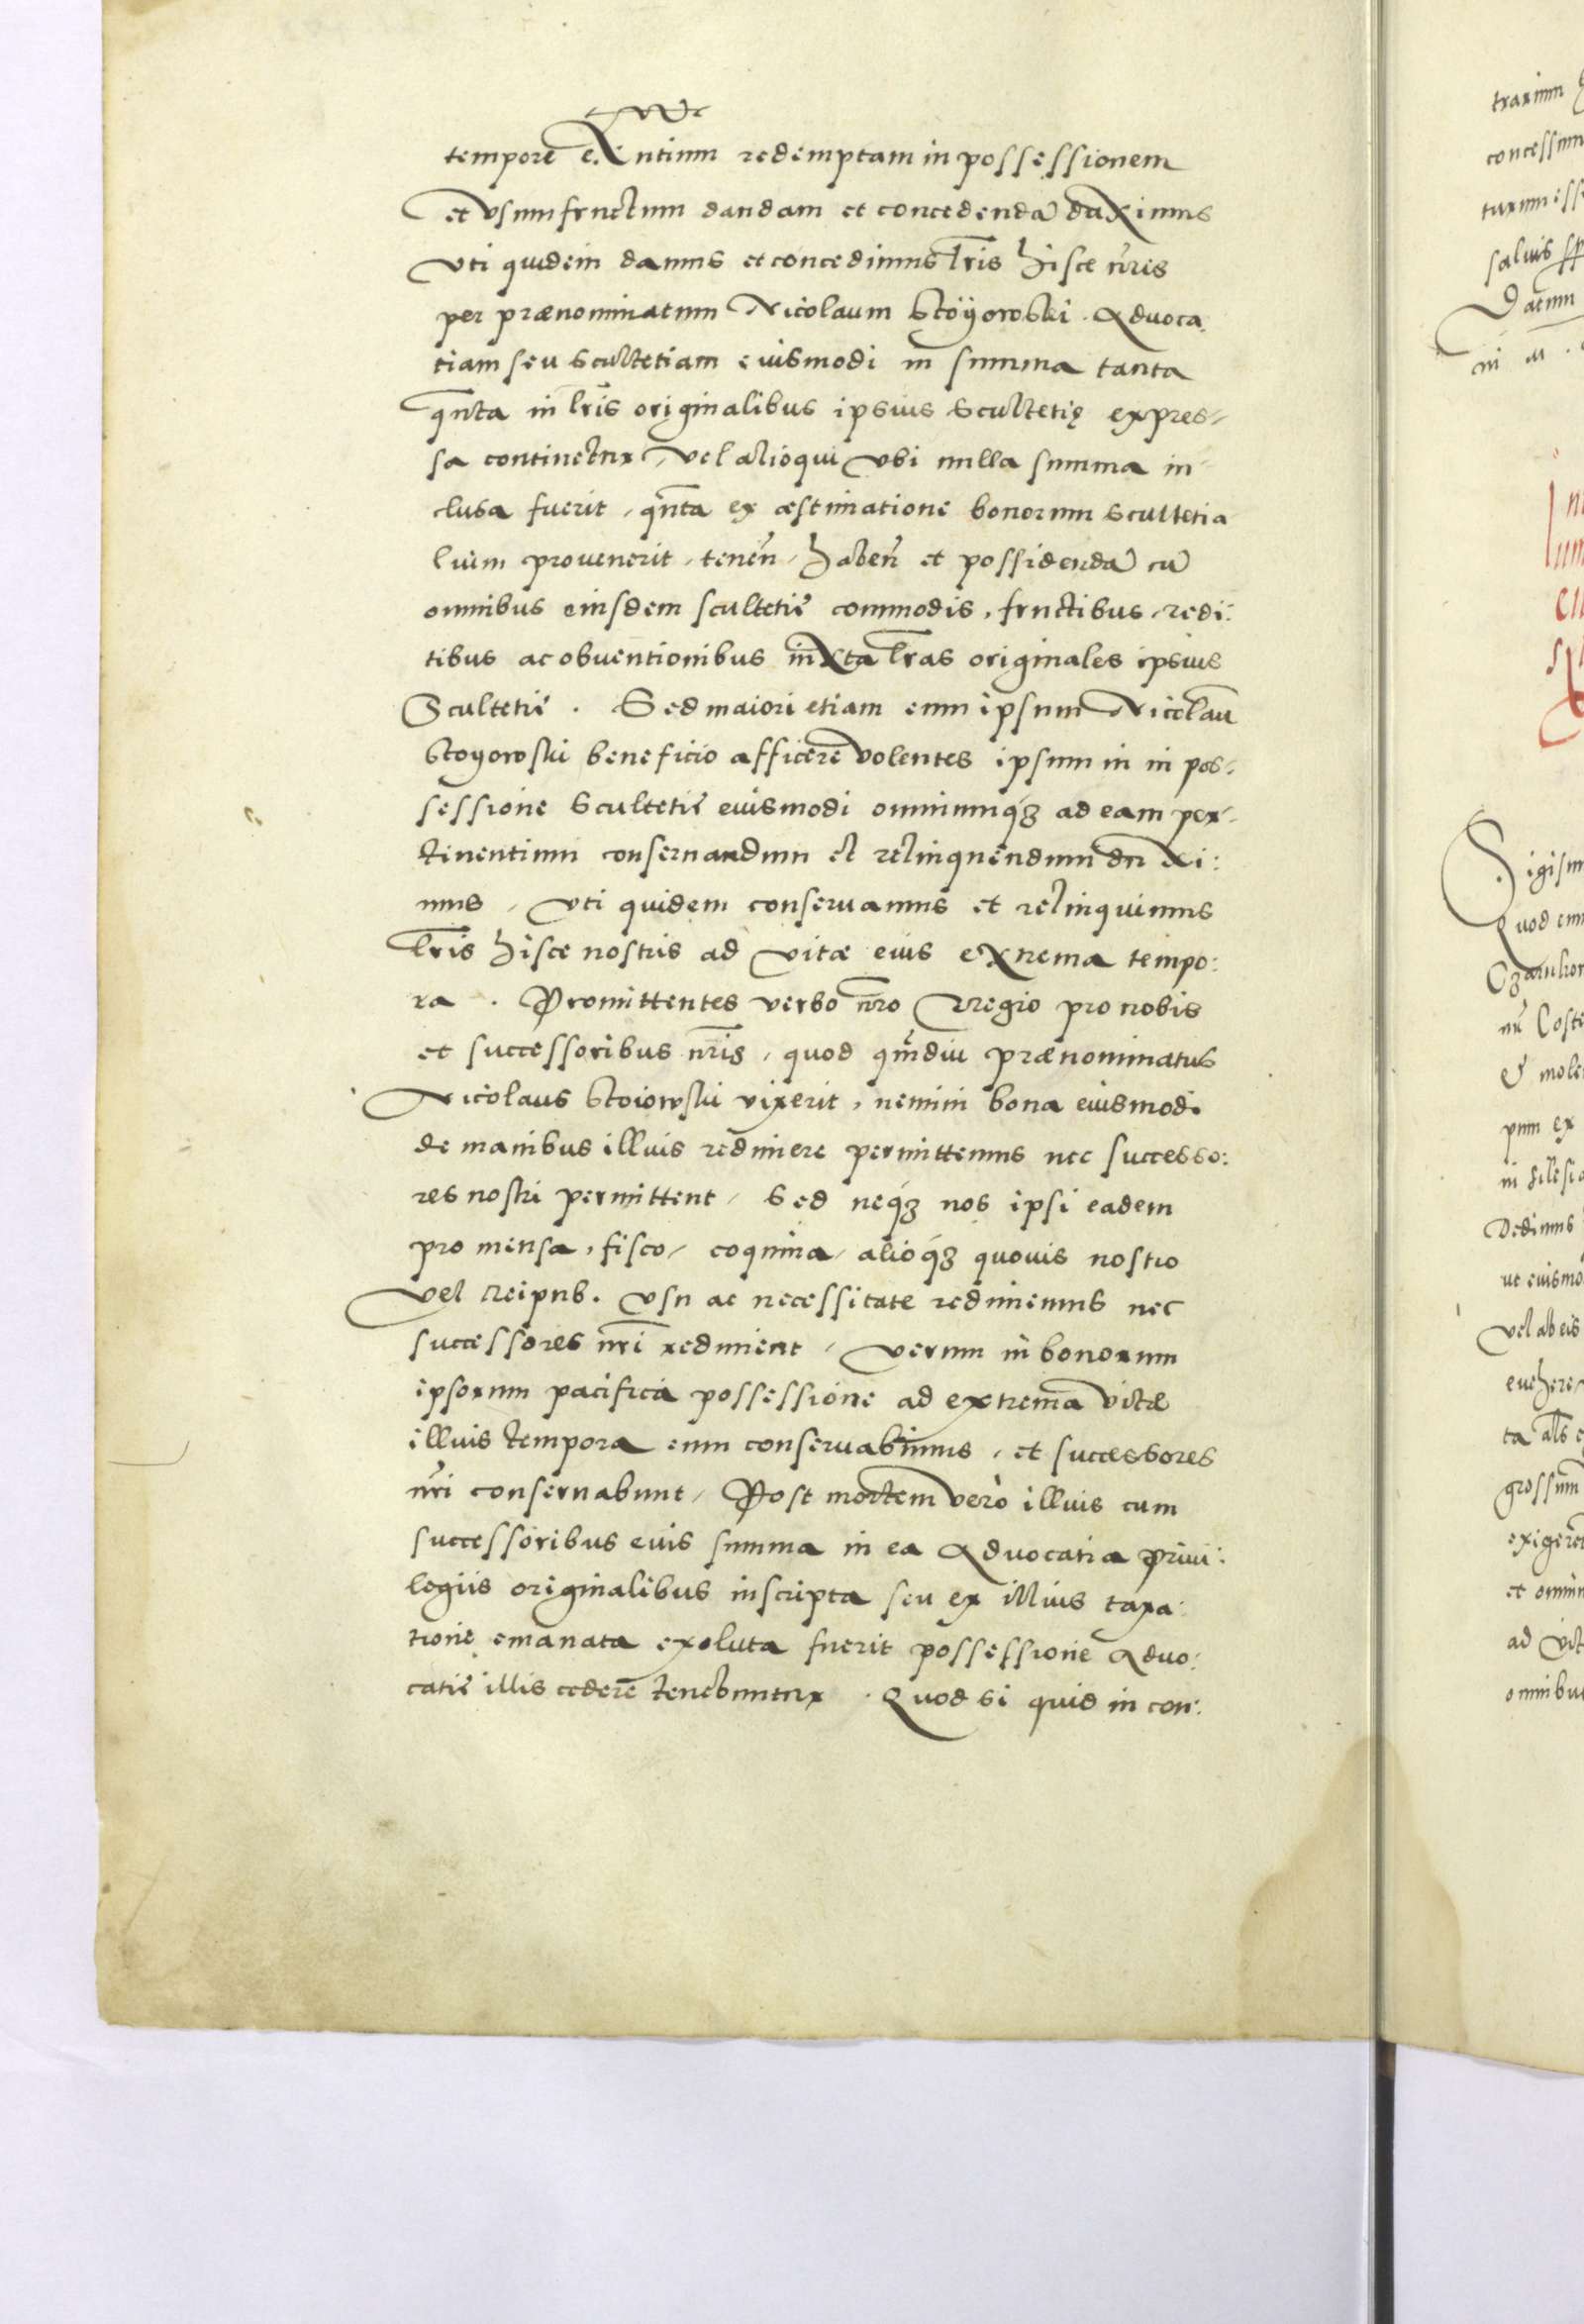 tempore exentium redemptam in possessionem
et vsumfructum dandam et concedendā duximus
vti quidem damus et concedimus lr̄is hisce nr̄is
per prænominatum Nicolaum Stoÿowski. Aduoca
tiam seu scultetiam euismodi in summa tanta
qn̄ta in lr̄is originalibus ipsius Scultetię expres-
sa continetur, vel alioqui vbi nulla summa in
clusa fuerit, qn̄ta ex æstimatione bonorum scultetia
lium prouenerit, tenen̄, haben̄ et possidendā cū
omnibus eiusdem scultetię commodis, fructibus, redi:
tibus ac obuentionibus iuxta lr̄as originales ipsius
Scultetię. Sed maiori etiam eum ipsum Nicolaū
Stoyowski beneficio afficere volentes ipsum in in pos-
sessione Scultetię euismodi omniumq3 ad eam per-
tinentium conseruandum et relinquendum duxi:
mus, vti quidem conseruamus et relinquimus
lr̄is hisce nostris ad vitæ eius extrema tempo:
ra. Promittentes verbo nr̄o Regio pro nobis
et successoribus nr̄is, quod qm̄diu prænominatus
Nicolaus Stoiowski vixerit, nemini bona eiusmodi
de manibus illius redimere permittemus nec successo:
res nostri permittent, Sed neq3 nos ipsi eadem
pro mensa, fisco, coquina, alioq3 quouis nostro
vel Reipub. vsu ac necessitate redimemus nec
successores nr̄i redimient, verum in bonorum
ipsorum pacifica possessione ad extrema vitæ
illius tempora eum conseruabimus, et successores
nr̄i conseruabunt, Post mortem verò illius cum
successoribus eius summa in ea Aduocatia priui:
legiis originalibus inscripta seu ex illius taxa:
tione emanata exoluta fuerit possessione Aduo:
catię illis cedere tenebuntur. Quod si quid in con:
traximu
concessim
turum iss
saluis
Datum
Sigism
Quod cum
Costi
Et mole
pum ex
in Silesia
Dedimus
ut euismo
vel ab eis
euehere
ta als
grossum
exigere
et omni
ad vit
omnibu